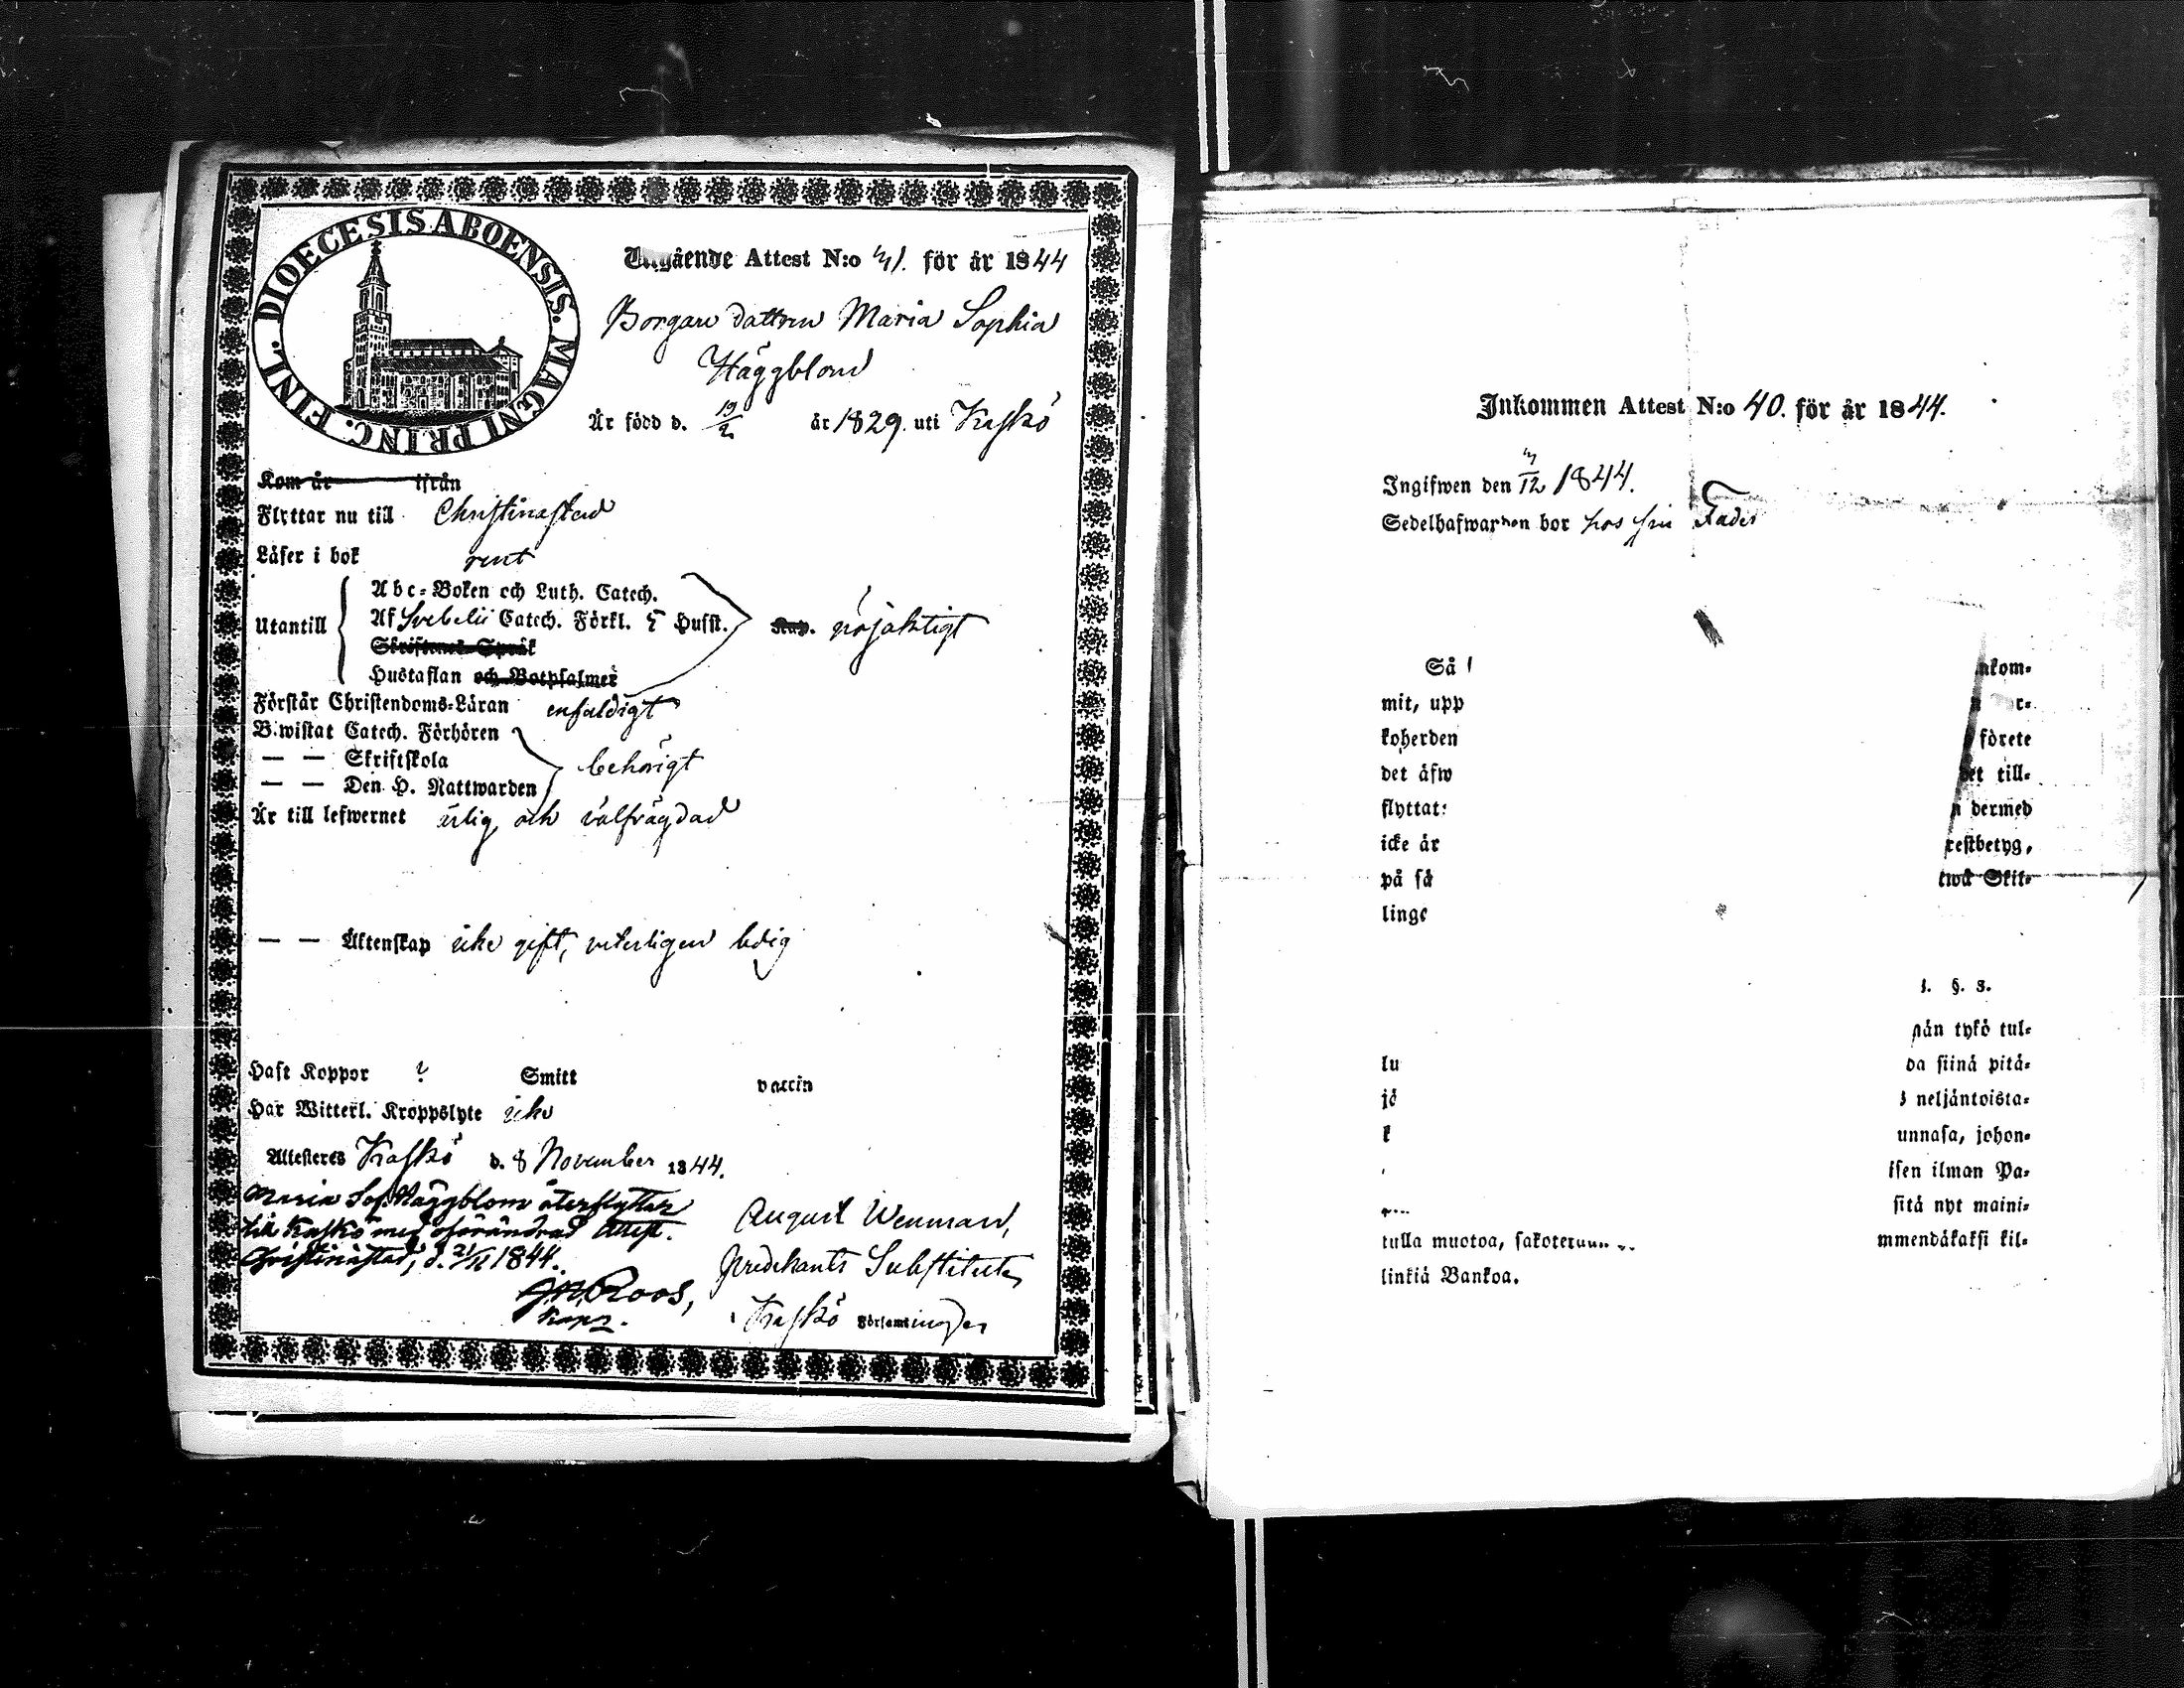 DIOECESIS ABOENSIS. MAGNI PRINC. FINL.
Utgående Attest N:o 41. för år 1844
Borgare dottren Maria Sophia
Häggblom
Är född d. 19/2 år 1829. uti Kaskö
Kom år ifrån
Flyttar nu till Christinastad
Läser i bok rent
Utantill
Abc-Boken och Luth. Catech.
Af Svebelii Catech. Förkl. 5 Hufst.
Skriftenes Språk
Hustaflan och Botpsalmer
Kap. nöjaktigt
Förstår Christendoms-Läran enfaldigt
Bewistat Catech. Förhören
— — Skriftskola behörigt
— — Den H. Nattwarden
Är till lefwernet ärlig och välfrägdad
— — Äktenskap icke gift, veterligen ledig
Haft Koppor ? Smitt vaccin
Har Witterl. Kroppslyte icke
Attesteres Kaskö d. 8 November 1844.
Maria Sof. Häggblom återflyttar
till Kaskö med oförändrad attest.
Christinastad, d. 1844.
J. M. Roos,
Kapl.
August Wenman,
Predikants Substitut
Kaskö Församlinger
Inkommen Attest N:o 40. för år 1844.
Ingifwen den /12 1844.
Sedelhafwarden bor hos sin Fader
Så nkom-
mit, upp r-
koherden förete
det äfw det till-
flyttat n dermed
icke är restbetyg,
på så twå Skil-
linge
1. §. 3.
pån tykö tul-
lu da siinä pitä-
jä neljäntoista-
k unnasa, johon-
isen ilman Pa-
sitä nyt maini-
tulla muotoa, sakoteruu mmendäkaksi kil-
linkiä Bankoa.